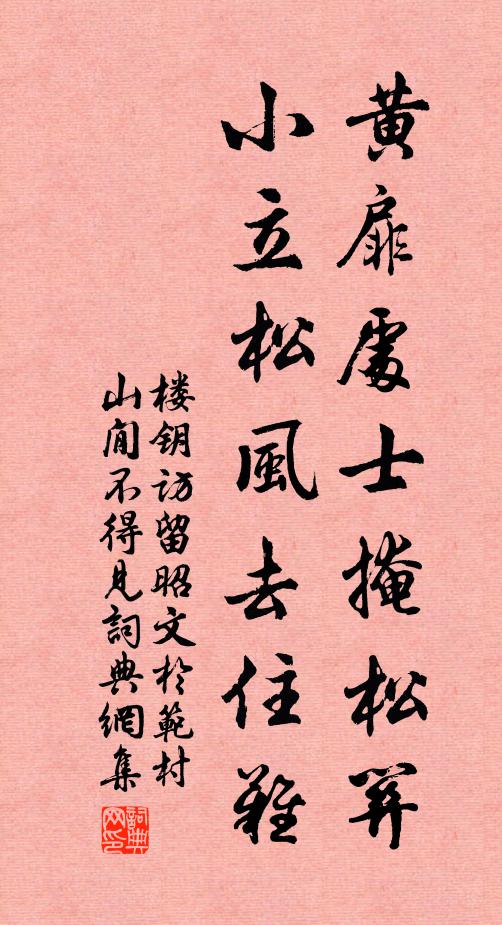 黃扉處士掩松關
小立松風去住難
楼钥访留昭文於範村
山間不得見詞典網集
詞典网印